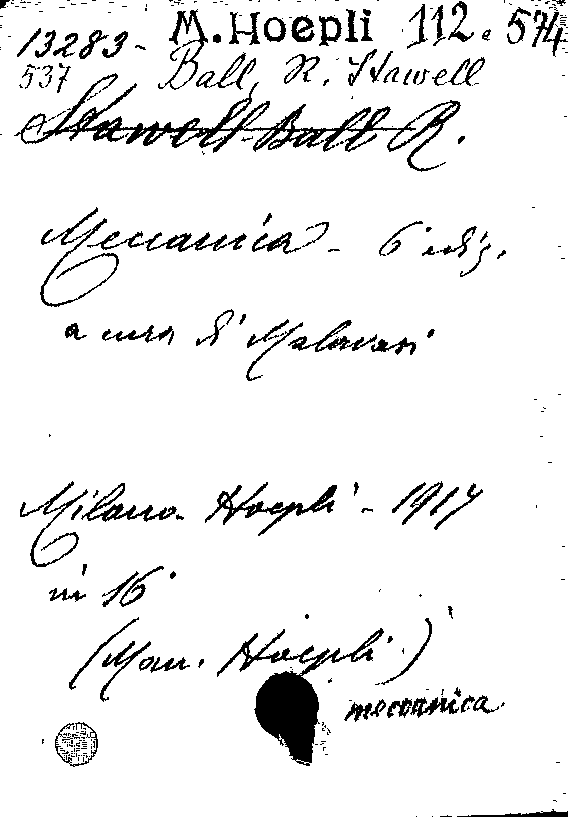 13283 - M. Hoepli 112 e 574
537 Ball, R. Stawell
Stawell Ball R.
Meccanica - 6° ediz.
a cura di Malavasi
Milano - Hoepli - 1917
in 16°
(Man. Hoepli)
meccanica